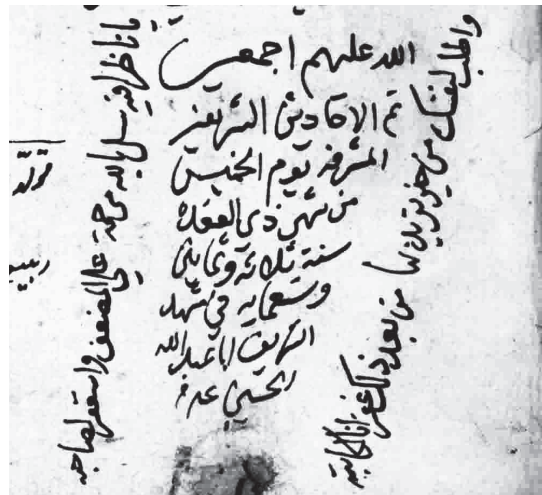 الله عليهم اجمعين
تم الاحاديث الشريفه
المشرفه يوم الخميس
من شهر ذي القعده
سنة ثلاثه وثمانين
وتسعمايه في مشهد
الشريف ابا عبد الله
الحسين
يا ناظرا فيه سل بالله مرحمة على المصنف واستغفر لصاحبه
واطلب لنفسك من خير تريد لها من بعد ذلك غفرانا لكاتبه